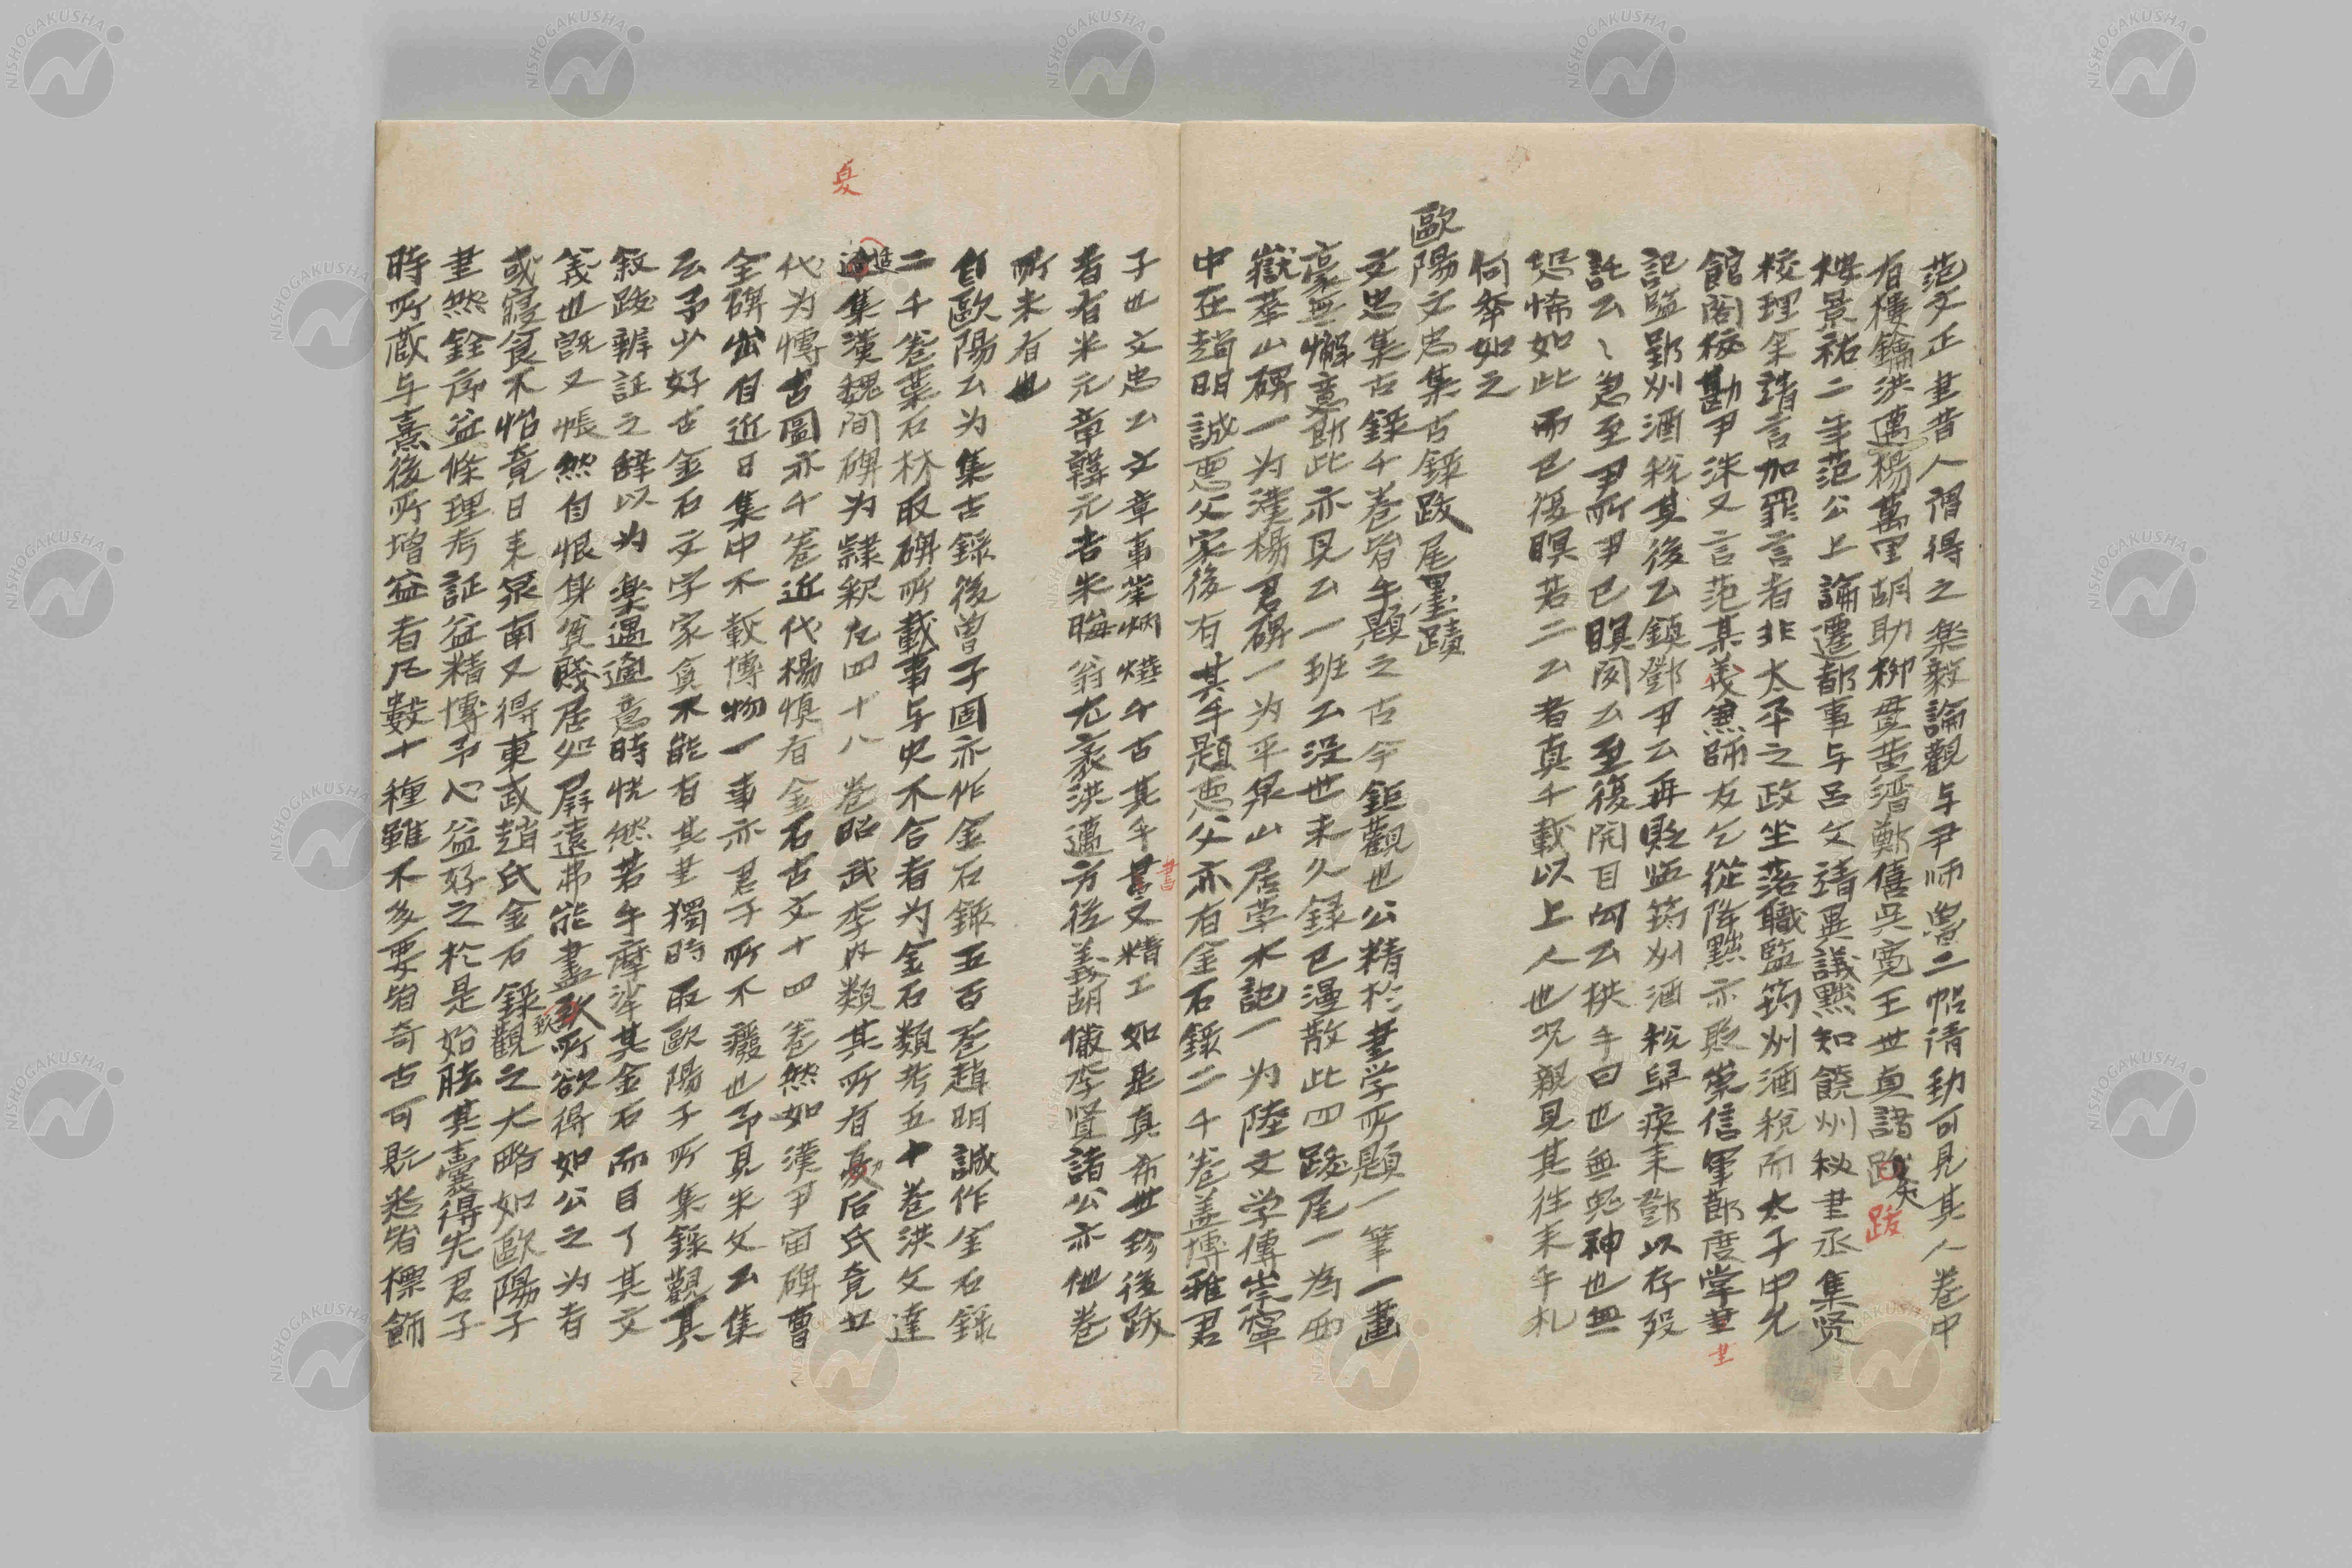 范文正書昔人謂得之楽毅論觀与尹師魯二帖清勁可見其人巻中
有樓鑰洪邁楊萬里胡助柳貫黄溍鄭僖呉寛王世貞諸跋
跋
按景祐二年范公上論遷都事与呂文靖異議黜知饒州秘書丞集贤
校理余靖言加罪言者非太平之政坐落職監筠州酒税而太子中允
館閣校勘尹洙又言范某義兼師友乞從降黜亦貶崇信軍節度掌書
書
記監郢州酒税其後公鎮鄧尹公再貶監筠州酒税舁疾来鄧以存殁
託公〻急至尹所尹已瞑図公至復開目向公拱手曰也無鬼神也無
恐怖如此而已復瞑若二公者真千載以上人也况親見其往来手札
何幸如之
歐陽文忠集古録跋尾墨蹟
文忠集古録千巻皆手題之古今鉅觀也公精於書学所題一筆一畫
豪無懈意即此亦見公一班公没世未久録已漫散此四跋尾一為西
嶽華山碑一为漢楊君碑一为平泉山居草木記一为陸文学傳崇寧
中在趙明誠悳父家後有其手題悳父亦有金石録二千巻盖博雅君
子也文忠公文章事業炳燁千古其手書又精工如是真希世珍後跋
書
者有米元章韓元吉朱晦翁尤袤洪邁方後義胡儼李贤諸公亦他巻
所未有也
自歐陽公为集古録後曽子固亦作金石録五百巻趙明誠作金石録
二千巻葉石林取碑所載事与史不合者为金石類考五十巻洪文達
适集漢魏間碑为隷釈凡四十八巻昭武李丙類其所有夏后氏竟五
夏
代为博古圖亦千巻近代楊慎有金石古文十四巻然如漢尹宙碑曹
全碑出自近日集中不載博物一事亦君子所不癈也予見朱文公集
云予少好古金石文字家貧不能有其書獨時取歐陽子所集録觀其
叙跋辨証之辭以为楽遇適意時恍然若手摩挲其金石而目了其文
義也既又悵然自恨身貧賤居処屏遠弗能盡致所欲得如公之为者
或寝食不怡竟日来泉南又得東武趙氏金石録觀之大略如歐陽子
書然銓序益條理考証益精博予心益好之於是始胠其橐得先君子
時所蔵与熹後所増益者凡數十種雖不多要皆奇古可玩悉皆標飾